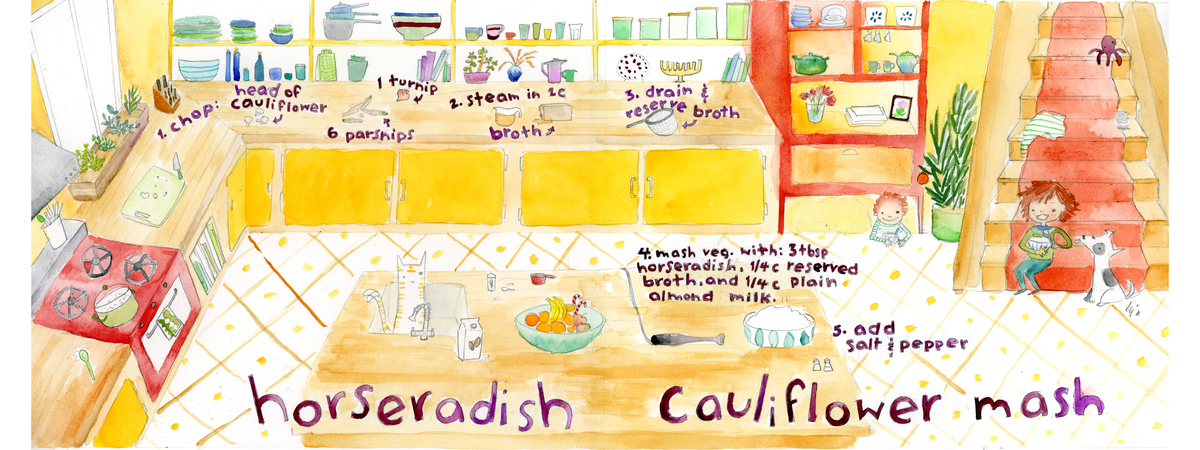 1. chop:
head of
cauliflower
1 turnip
6 parships
2. steam in 2c
broth
3. drain &
reserve broth
4. mash veg. with: 3tbsp
horseradish, 1/4c reserved
broth, and 1/4c plain
almond milk.
5. add
salt & pepper
horseradish cauliflower mash